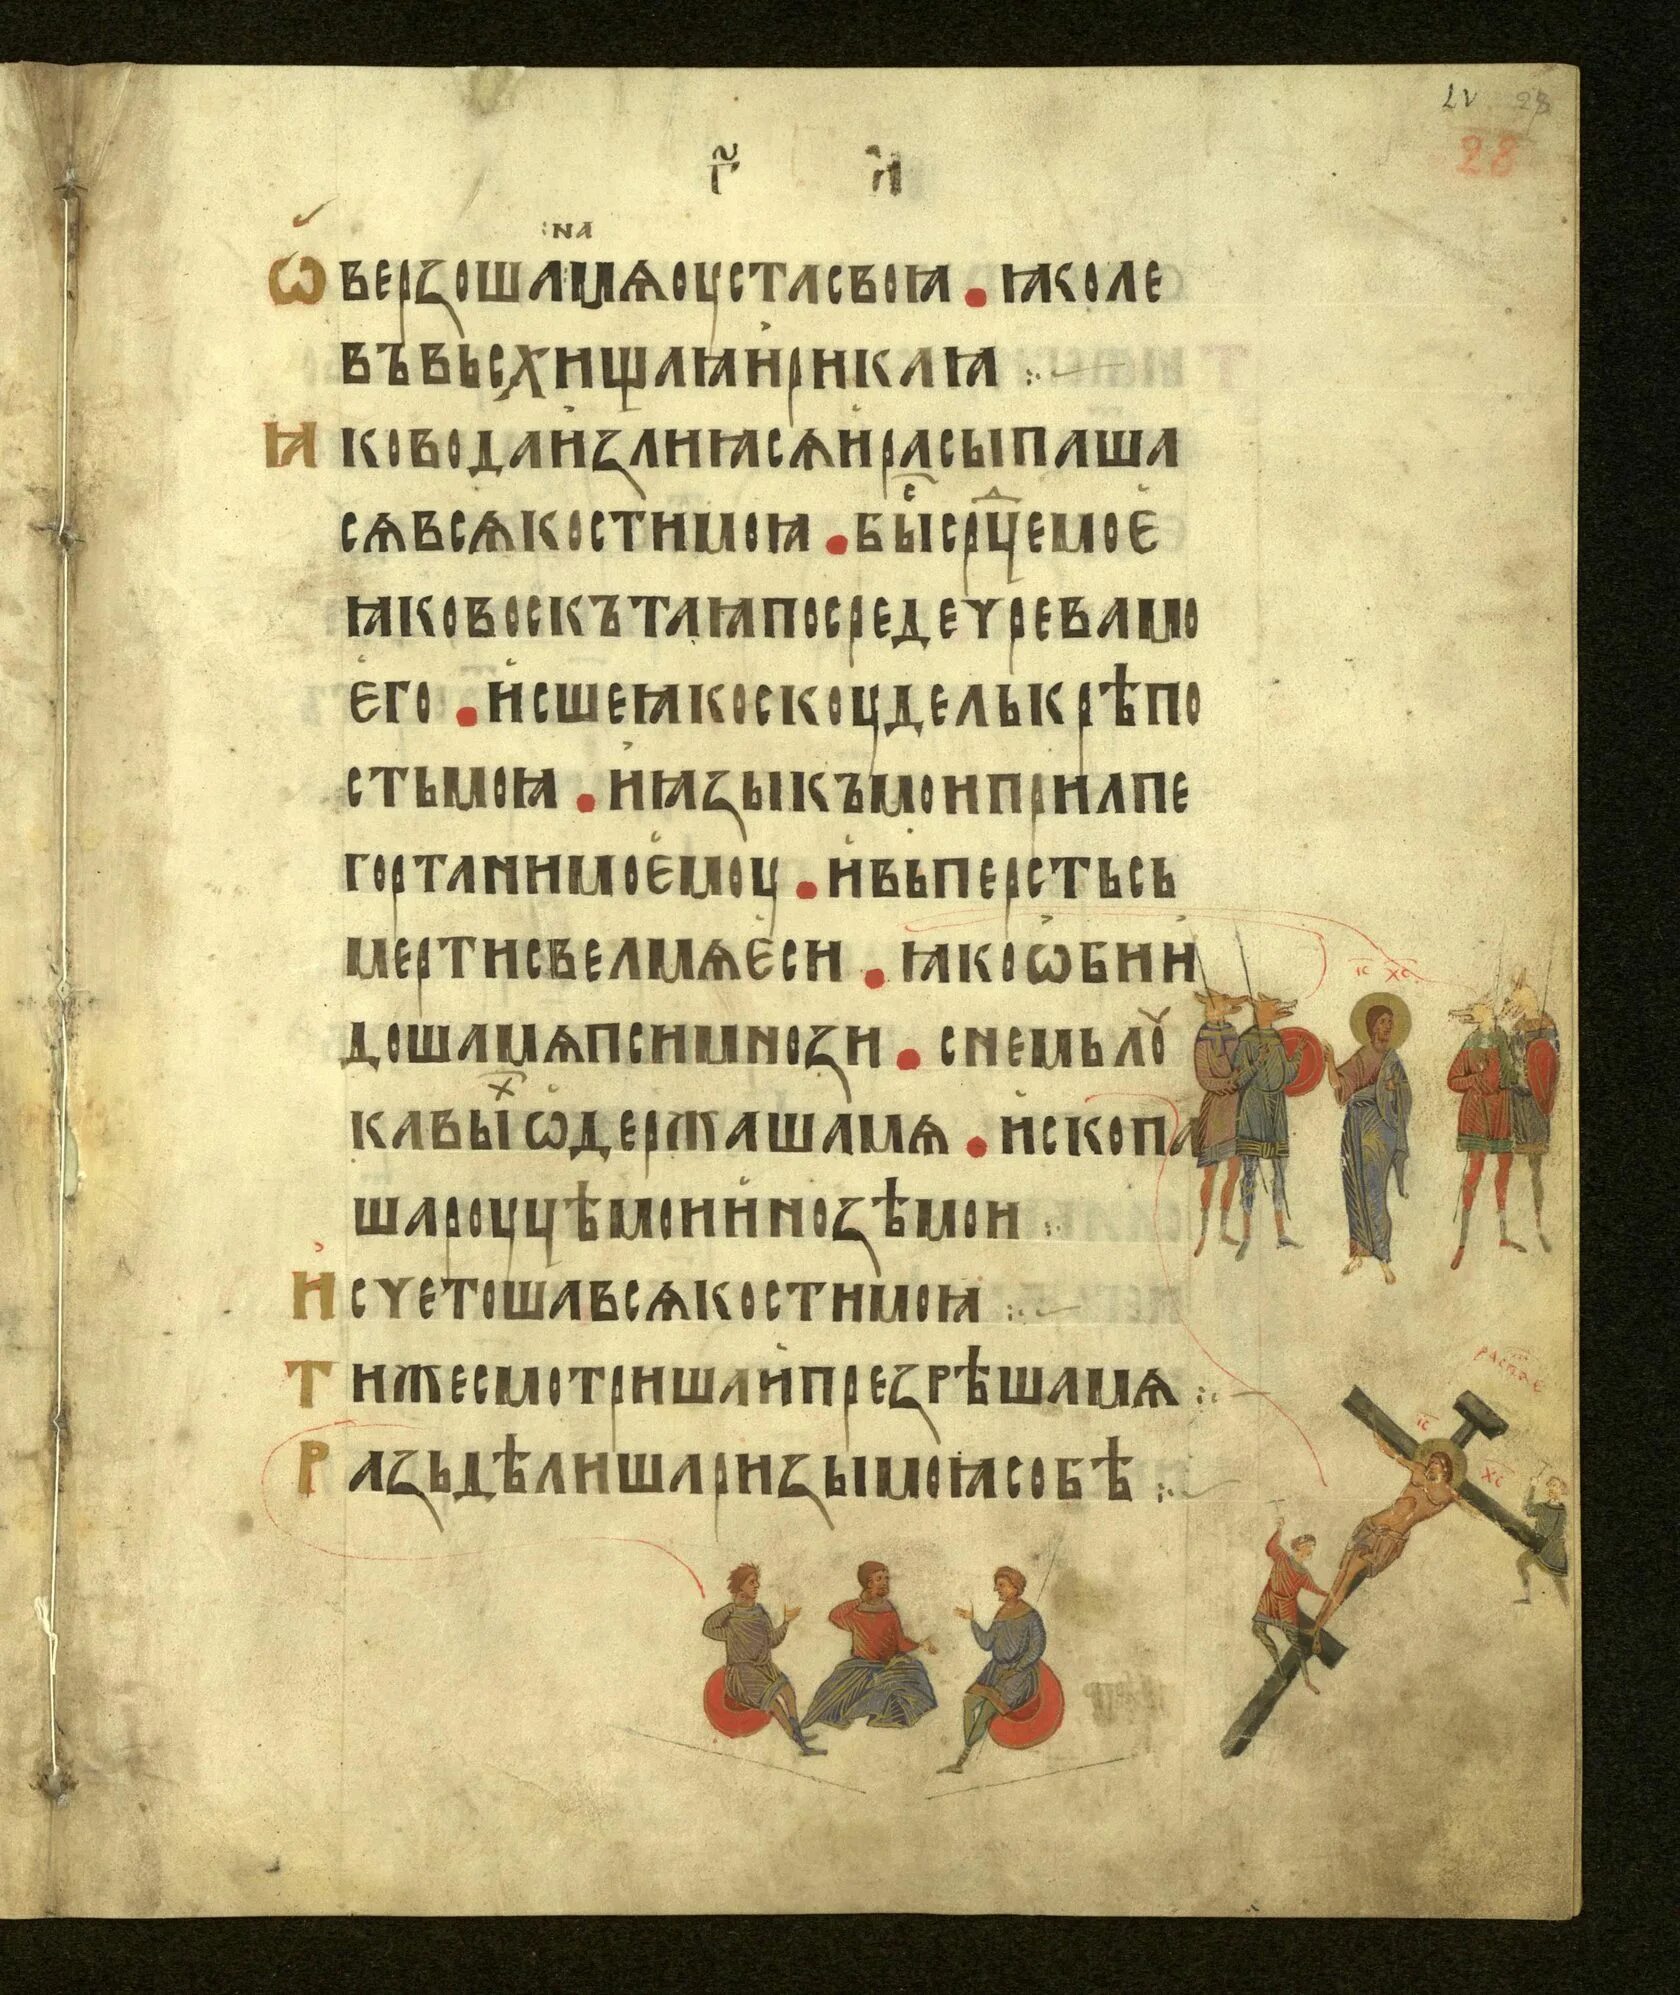 LV 28
28
г҃ и
:на
Ѿверзошамѧоустасвоꙗ • ꙗколе
въвьсхищаꙗирикаꙗ :~
Ꙗководаизлиꙗсѧирасыпаша
сѧвсѧкостимоꙗ • бы̑ⷭсрⷣцемое
ꙗковоскътаꙗпосредечревамо
его • исшеꙗкоскоуделькрѣпо
стьмоꙗ • иꙗзыкъмоиприлпе
гортанимоемоу • ивьперстьсь
мертисвелмѧеси • ꙗкоѡбии
дошамѧпсимнози • снемьлѹ
кавыⷯѡдержашамѧ • ископа
шароуцѣмоиинозѣмои :
Исчетошавсѧкостимоꙗ :~
Тижесмотришаипрезрѣшамѧ :~
Разьдѣлишаризымоꙗсобѣ :~
іс҃ хс҃
распⷮае
іс҃
хс҃